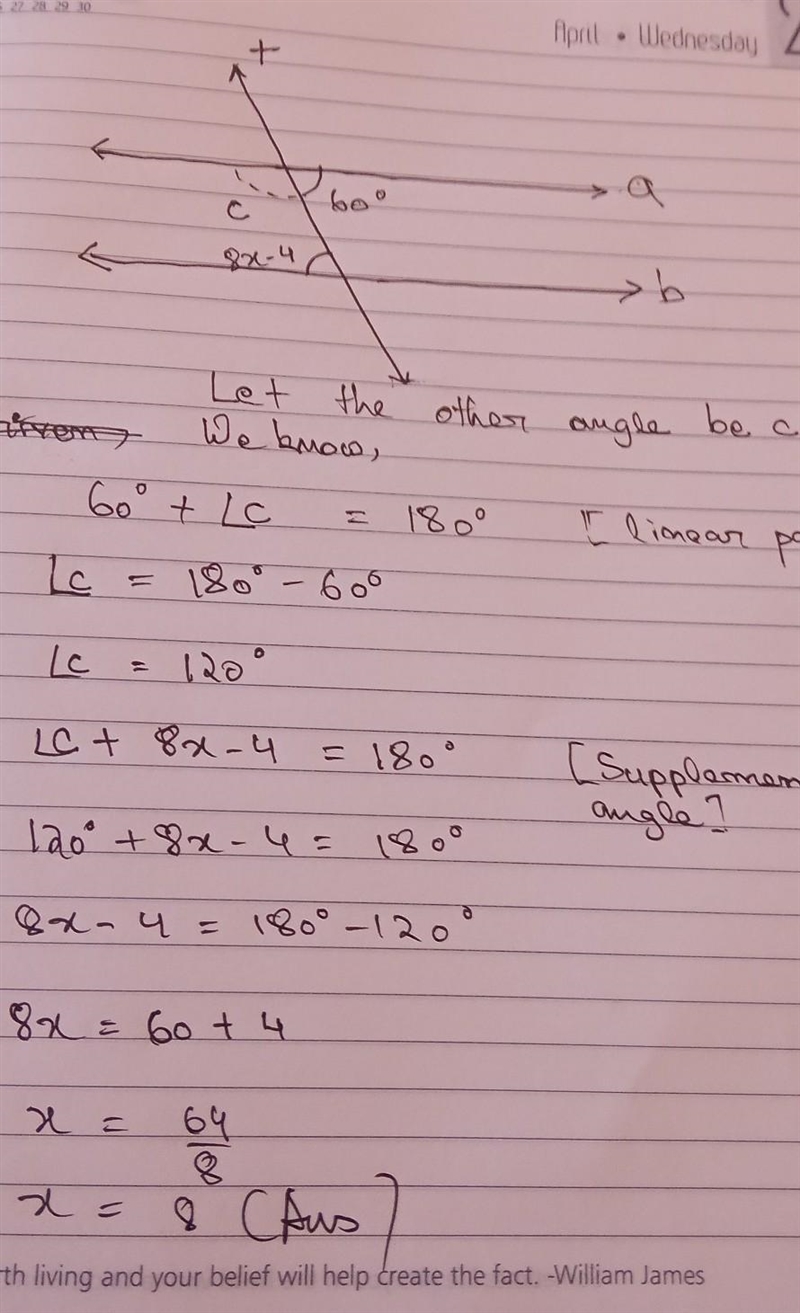 27 28 29 30
April • Wednesday
t
a
c 60°
8x-4
b
Let the other angle be c
We know,
60° + ∠c = 180° [ linear
∠c = 180° - 60°
∠c = 120°
∠c + 8x - 4 = 180° [
angle]
120° + 8x - 4 = 180°
8x - 4 = 180° - 120°
8x = 60 + 4
x = 64
8
x = 8 (Ans)
living and your belief will help create the fact. -William James